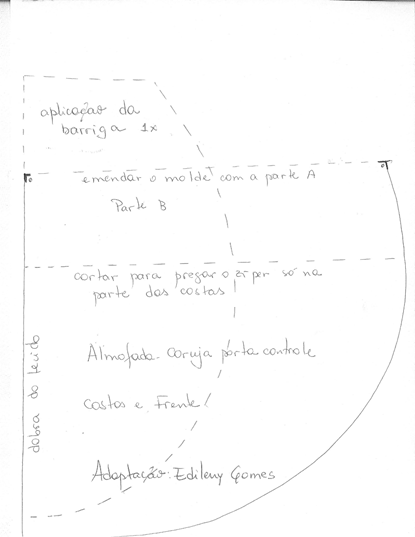 aplicação da
barriga 1x
emendar o molde com a parte A
Parte B
cortar para pregar o ziper só na
parte das costas
Almofada Coruja porta controle
Costas e Frente
Adaptação: Edileny Gomes
dobra do tecido